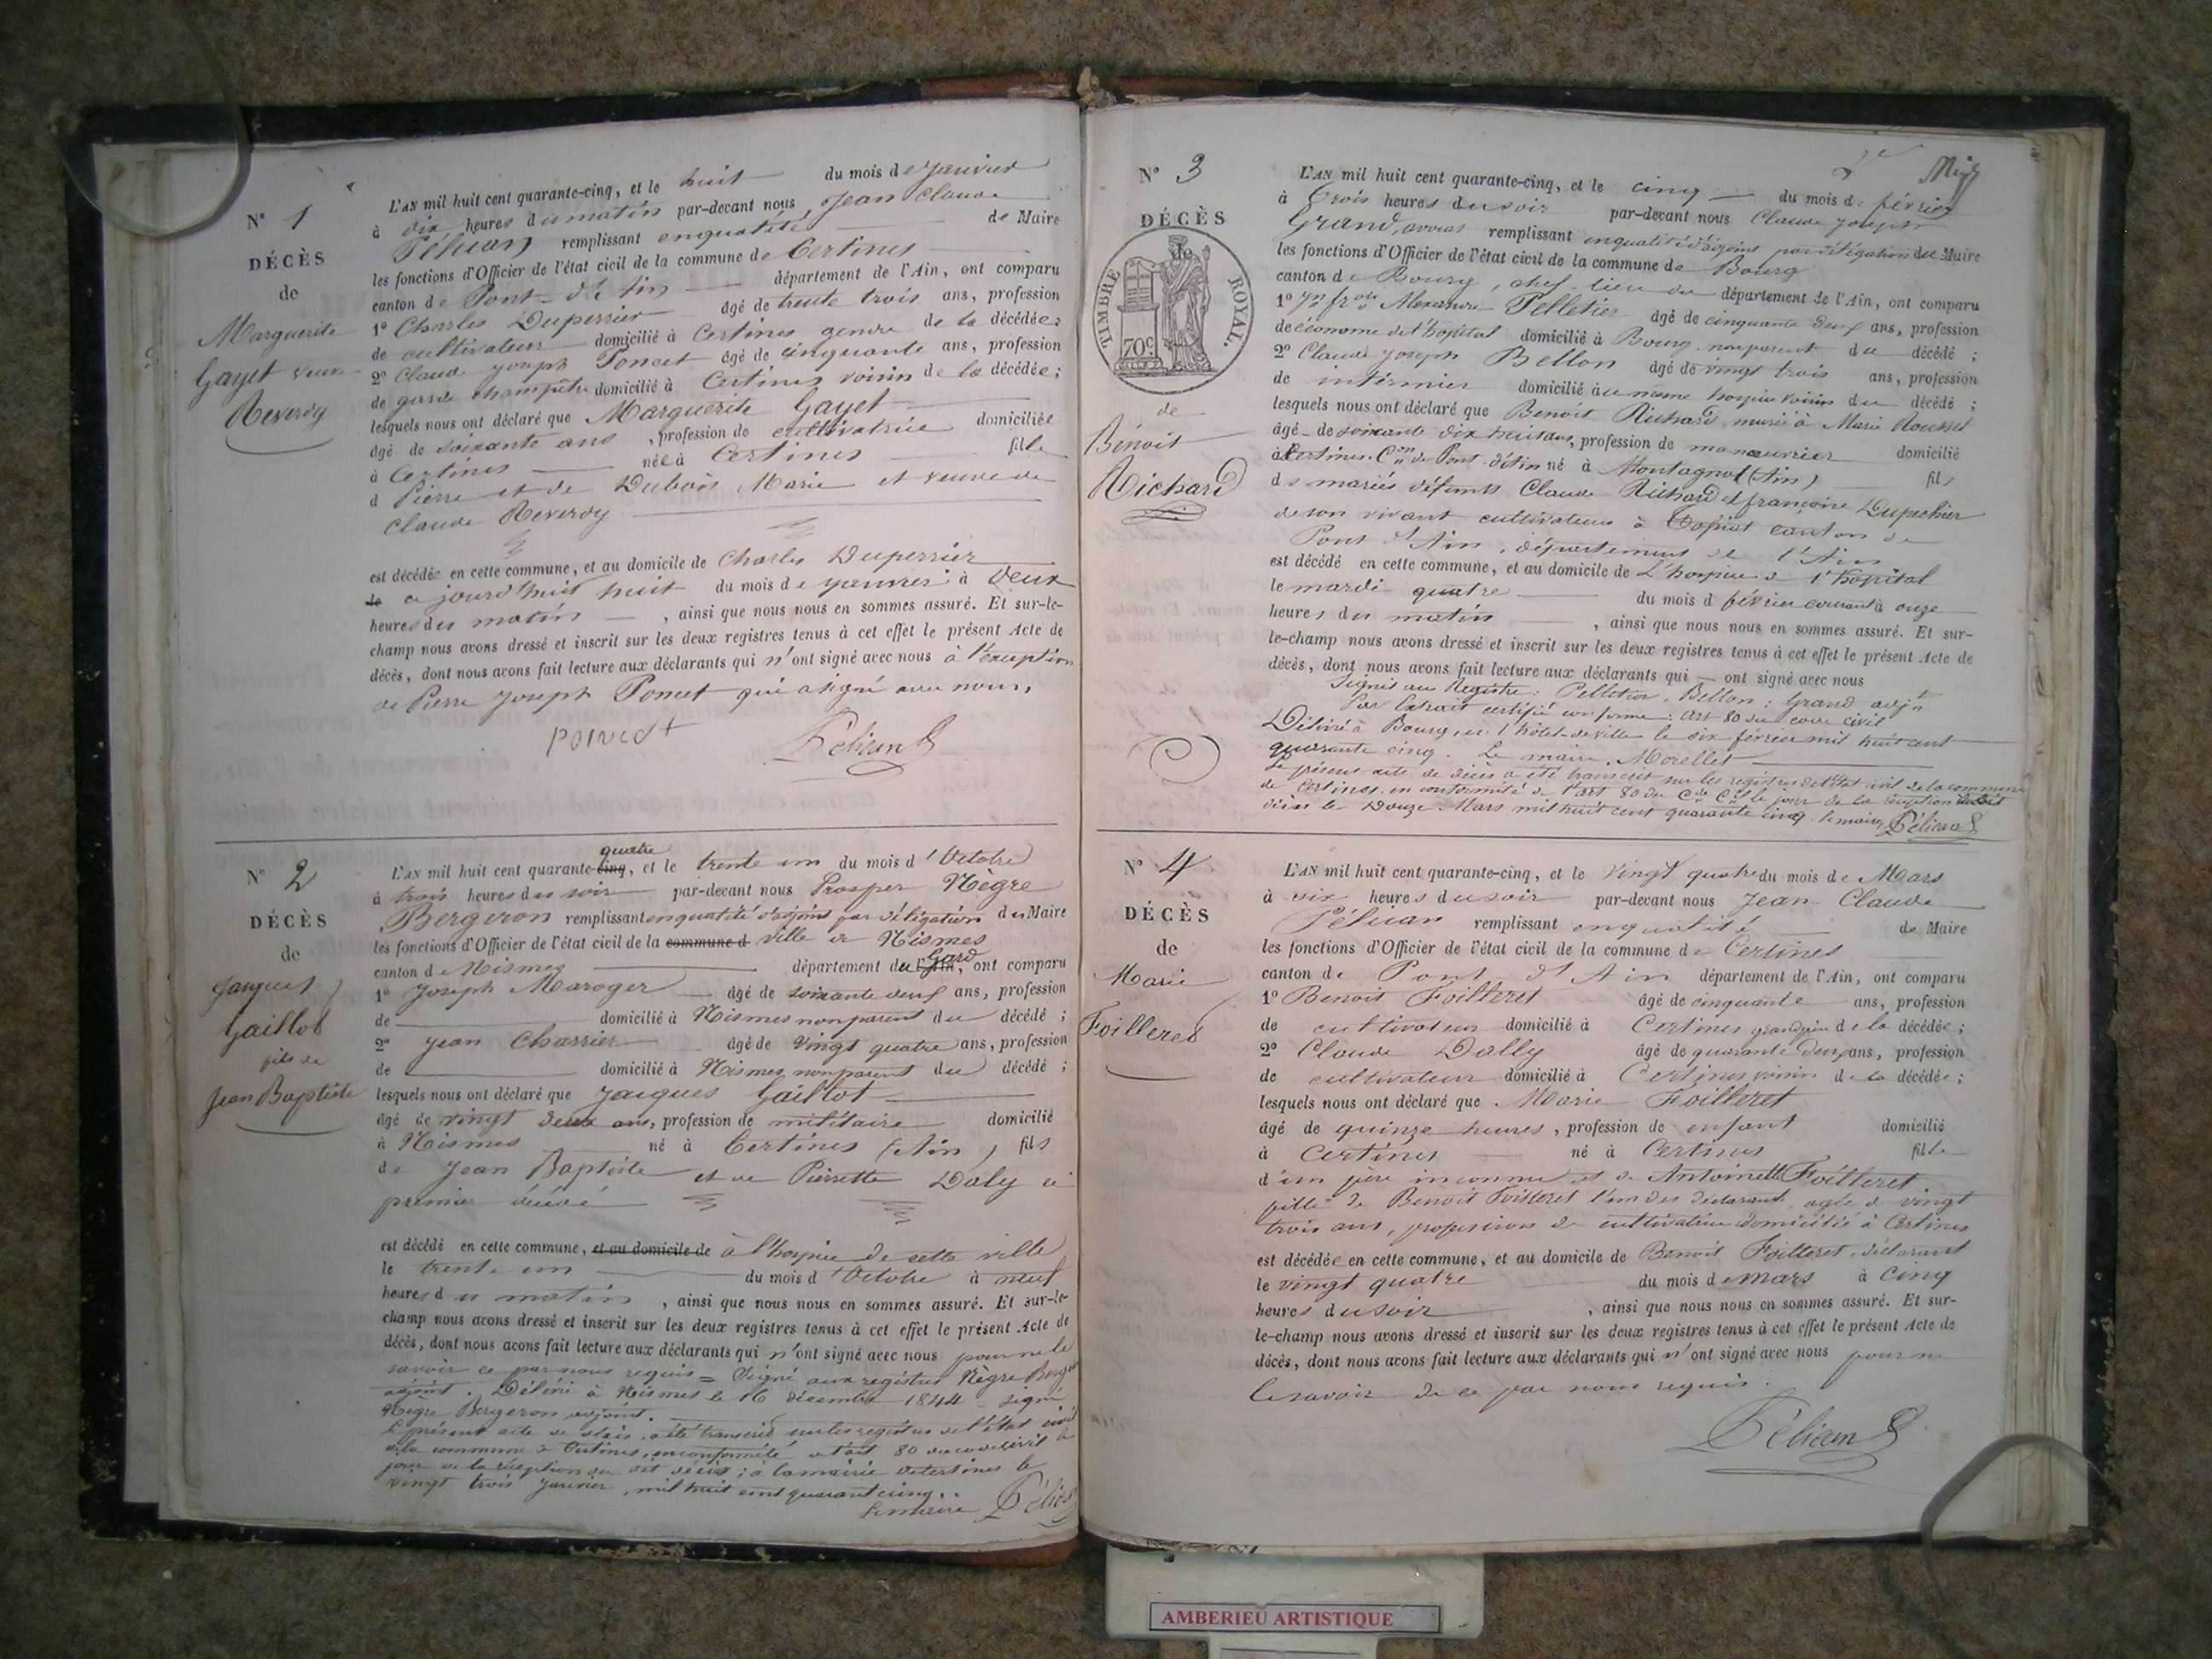 N° 1
DÉCÈS
de
Marguerite
Gayet veuve
Reverdy
L'AN mil huit cent quarante-cinq, et le huit du mois de janvier
à dix heures du matin par-devant nous Jean Claude
Pélican remplissant en qualité de Maire
les fonctions d'Officier de l'état civil de la commune de Certines
canton de Pont-d'Ain département de l'Ain, ont comparu
1° Charles Duperrier âgé de trente trois ans, profession
de cultivateur domicilié à Certines gendre de la décédée;
2° Claude Joseph Poncet âgé de cinquante ans, profession
de garde champêtre domicilié à Certines voisin de la décédée;
lesquels nous ont déclaré que Marguerite Gayet
âgé de soixante ans, profession de cultivatrice domiciliée
à Certines née à Certines fille
d Pierre et de Dubois Marie et veuve de
Claude Reverdy
est décédée en cette commune, et au domicile de Charles Duperrier
le ce jourd'huit huit du mois de janvier à deux
heures du matin, ainsi que nous nous en sommes assuré. Et sur-le-
champ nous avons dressé et inscrit sur les deux registres tenus à cet effet le présent Acte de
décès, dont nous avons fait lecture aux déclarants qui n'ont signé avec nous à l'exception
de Pierre Joseph Poncet qui a signé avec nous,
Pélican
N° 2
DÉCÈS
de
Jacques
Gaillot
fils de
Jean Baptiste
quatre
L'AN mil huit cent quarante-cinq, et le trente un du mois d'Octobre
à trois heures du soir par-devant nous Prosper Nègre
Bergeron remplissant en qualité d'adjoint par délégation du Maire
les fonctions d'Officier de l'état civil de la commune d ville de Nismes
Gard
canton de Nismes département du l'Ain, ont comparu
1° Joseph Maroger âgé de soixante neuf ans, profession
de domicilié à Nismes non parent du décédé;
2° Jean Charrier âgé de vingt quatre ans, profession
de domicilié à Nismes non parent du décédé;
lesquels nous ont déclaré que Jacques Gaillot
âgé de vingt deux ans, profession de militaire domicilié
à Nismes né à Certines (Ain) fils
de Jean Baptiste et de Pierrette Daly ce
premier décédé
est décédé en cette commune, et au domicile de à l'hospice de cette ville
le trente un du mois d'Octobre à neuf
heures du matin, ainsi que nous nous en sommes assuré. Et sur-le-
champ nous avons dressé et inscrit sur les deux registres tenus à cet effet le présent Acte de
décès, dont nous avons fait lecture aux déclarants qui n'ont signé avec nous pour ne le
savoir ce par nous requis = Signé aux registres Nègre Bergeron
adjoint. Délivré à Nismes le 16 décembre 1844 signé
Nègre Bergeron adjoint.
Le présent acte de décès a été transcrit sur les registres de l'état civil
de la commune de Certines, en conformité de l'art 80 du code civil le
jour de la réception du dit décès; à la mairie de Certines le
vingt trois janvier, mil huit cent quarante cinq..
Le maire Pélican
2e
N° 3
DÉCÈS
de
TIMBRE ROYAL.
70c
de
Benoit
Richard
L'AN mil huit cent quarante-cinq, et le cinq du mois de février
à trois heures du soir par-devant nous Claude Joseph
Grand, avoué remplissant en qualité d'adjoint par délégation du Maire
les fonctions d'Officier de l'état civil de la commune de Bourg
canton de Bourg, chef-lieu du département de l'Ain, ont comparu
1° Alexandre Pelletier âgé de cinquante deux ans, profession
de économe de l'hopital domicilié à Bourg non parent du décédé;
2° Claude Joseph Bellon âgé de vingt trois ans, profession
de infirmier domicilié au meme hospice voisin du décédé;
lesquels nous ont déclaré que Benoit Richard, marié à Marie Roussel
âgé de soixante dix huit ans, profession de manoeuvrier domicilié
à Certines. Con de Pont-d'Ain né à Montagnat (Ain) fils
des mariés défunts Claude Richard et françoise Dupechier
de son vivant cultivateurs à Tossiat canton de
Pont d'Ain, département de l'Ain
est décédé en cette commune, et au domicile de L'hospice de l'hopital
le mardi quatre du mois d février courant à onze
heures du matin, ainsi que nous nous en sommes assuré. Et sur-
le-champ nous avons dressé et inscrit sur les deux registres tenus à cet effet le présent Acte de
décès, dont nous avons fait lecture aux déclarants qui ont signé avec nous
Signés au Registre: Pelletier, Bellon; Grand adjt
Par Extrait certifié conforme: art 80 du code civil
Délivré à Bourg, en l'hôtel de ville le six février mil huit cent
quarante cinq. Le maire, Morellet
Le présent acte de décès a été transcrit sur les registres de l'état civil de la commune
de Certines, en conformité de l'art 80 du Cde Cil le jour de la réception dudit
décès le Douze Mars mil huit cent quarante cinq. le maire, Pélican
N° 4
DÉCÈS
de
Marie
Foilleret
L'AN mil huit cent quarante-cinq, et le vingt quatre du mois de Mars
à six heures du soir par-devant nous Jean Claude
Pélican remplissant en qualité de Maire
les fonctions d'Officier de l'état civil de la commune de Certines
canton de Pont d'Ain département de l'Ain, ont comparu
1° Benoit Foilleret âgé de cinquante ans, profession
de cultivateur domicilié à Certines grand père de la décédée;
2° Claude Dally âgé de quarante deux ans, profession
de cultivateur domicilié à Certines voisin de la décédée;
lesquels nous ont déclaré que Marie Foilleret
âgé de quinze heures, profession de enfant domicilié
à Certines né à Certines fille
d'un père inconnu et de Antoinette Foilleret
fille de Benoit Foilleret l'un des déclarant, agée de vingt
trois ans, profession de cultivatrice domicilié à Certines
est décédée en cette commune, et au domicile de Benoit Foilleret, déclarant
le vingt quatre du mois de mars à cinq
heures du soir, ainsi que nous nous en sommes assuré. Et sur-
le-champ nous avons dressé et inscrit sur les deux registres tenus à cet effet le présent Acte de
décès, dont nous avons fait lecture aux déclarants qui n'ont signé avec nous pour ne
le savoir de ce par nous requis.
Pélican
AMBERIEU ARTISTIQUE